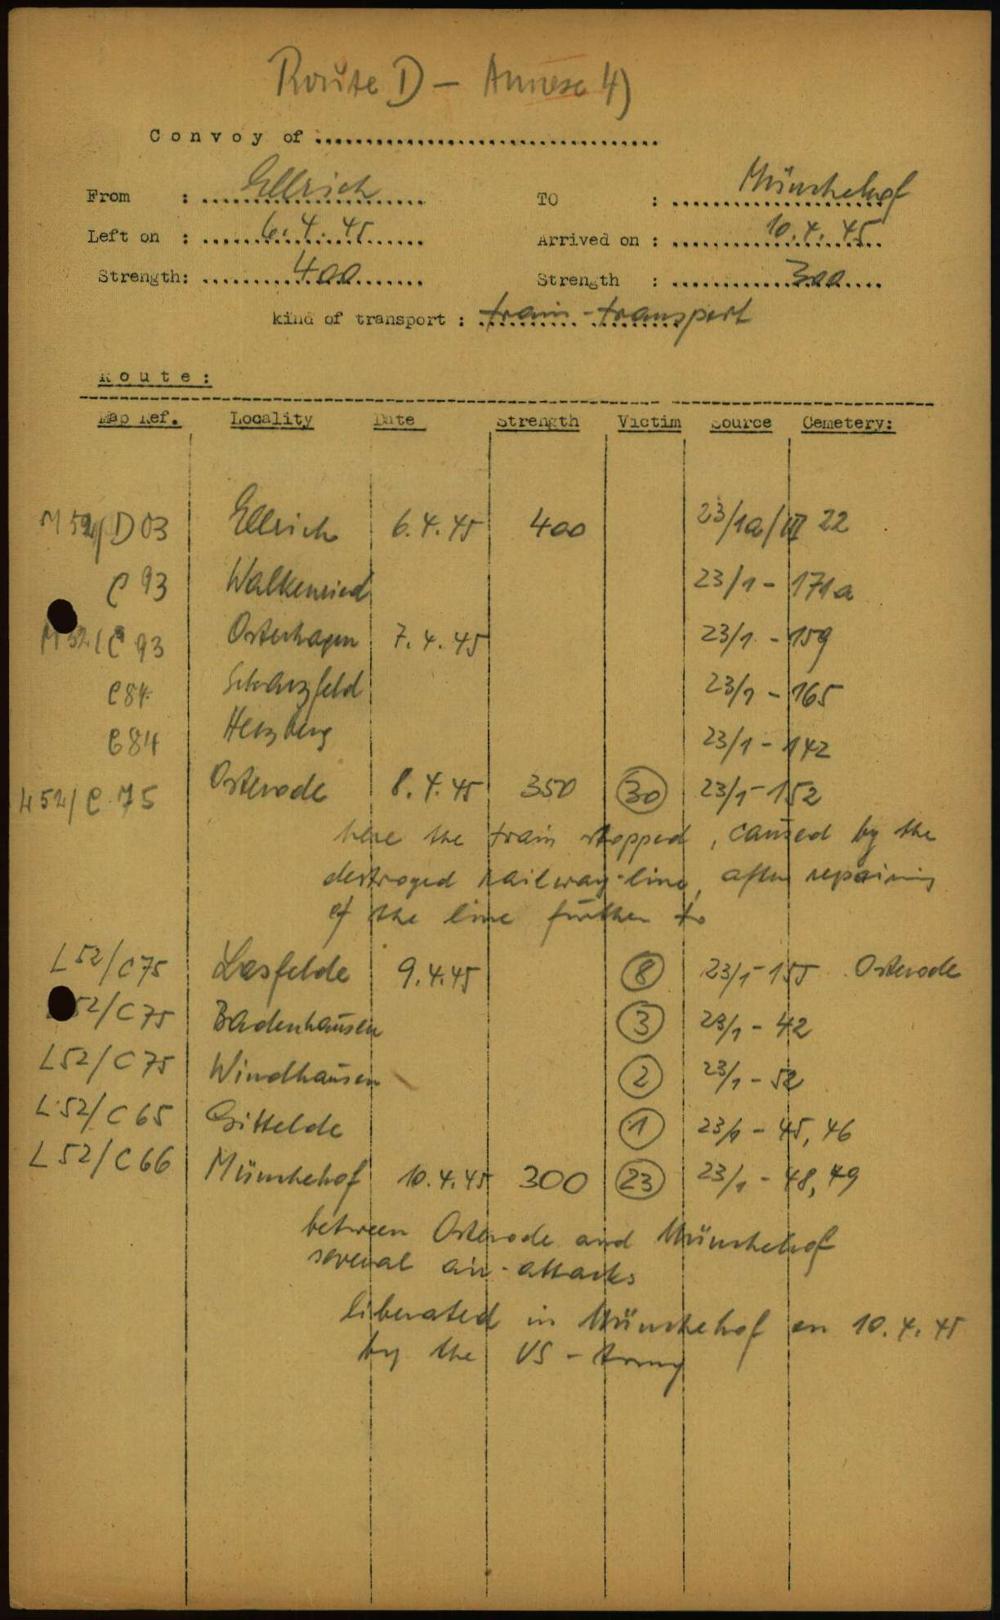 Route D - Annex 4)
Convoy of ....................................
From : Ellrich TO : Münchehof
Left on : 6.4.45 Arrived on : 10.4.45
Strength: 400 Strength : 300
kind of transport : train-transport
Route:
Map Ref. Locality Date Strength Victim Source Cemetery:
D03 Ellrich 6.4.45 400 23/1a/III 22
C 93 Walkenried 23/1 - 171a
M52/C 93 Osterhagen 7.4.45 23/1 - 159
C84 Scharzfeld 23/1 - 165
C84 Herzberg 23/1 - 142
L52/C 75 Osterode 8.4.45 350 30 23/1-152
here the train stopped, caused by the
destroyed railway-line, after repairing
of the line further to
L52/C75 Lasfelde 9.4.45 8 23/1-155 Osterode
52/C75 Badenhausen 3 23/1 - 42
L52/C75 Windhausen 2 23/1 - 52
L52/C65 Gittelde 1 23/1 - 45, 46
L52/C66 Münchehof 10.4.45 300 23 23/1 - 48, 49
between Osterode and Münchehof
several air-attacks
liberated in Münchehof on 10.4.45
by the US-Army